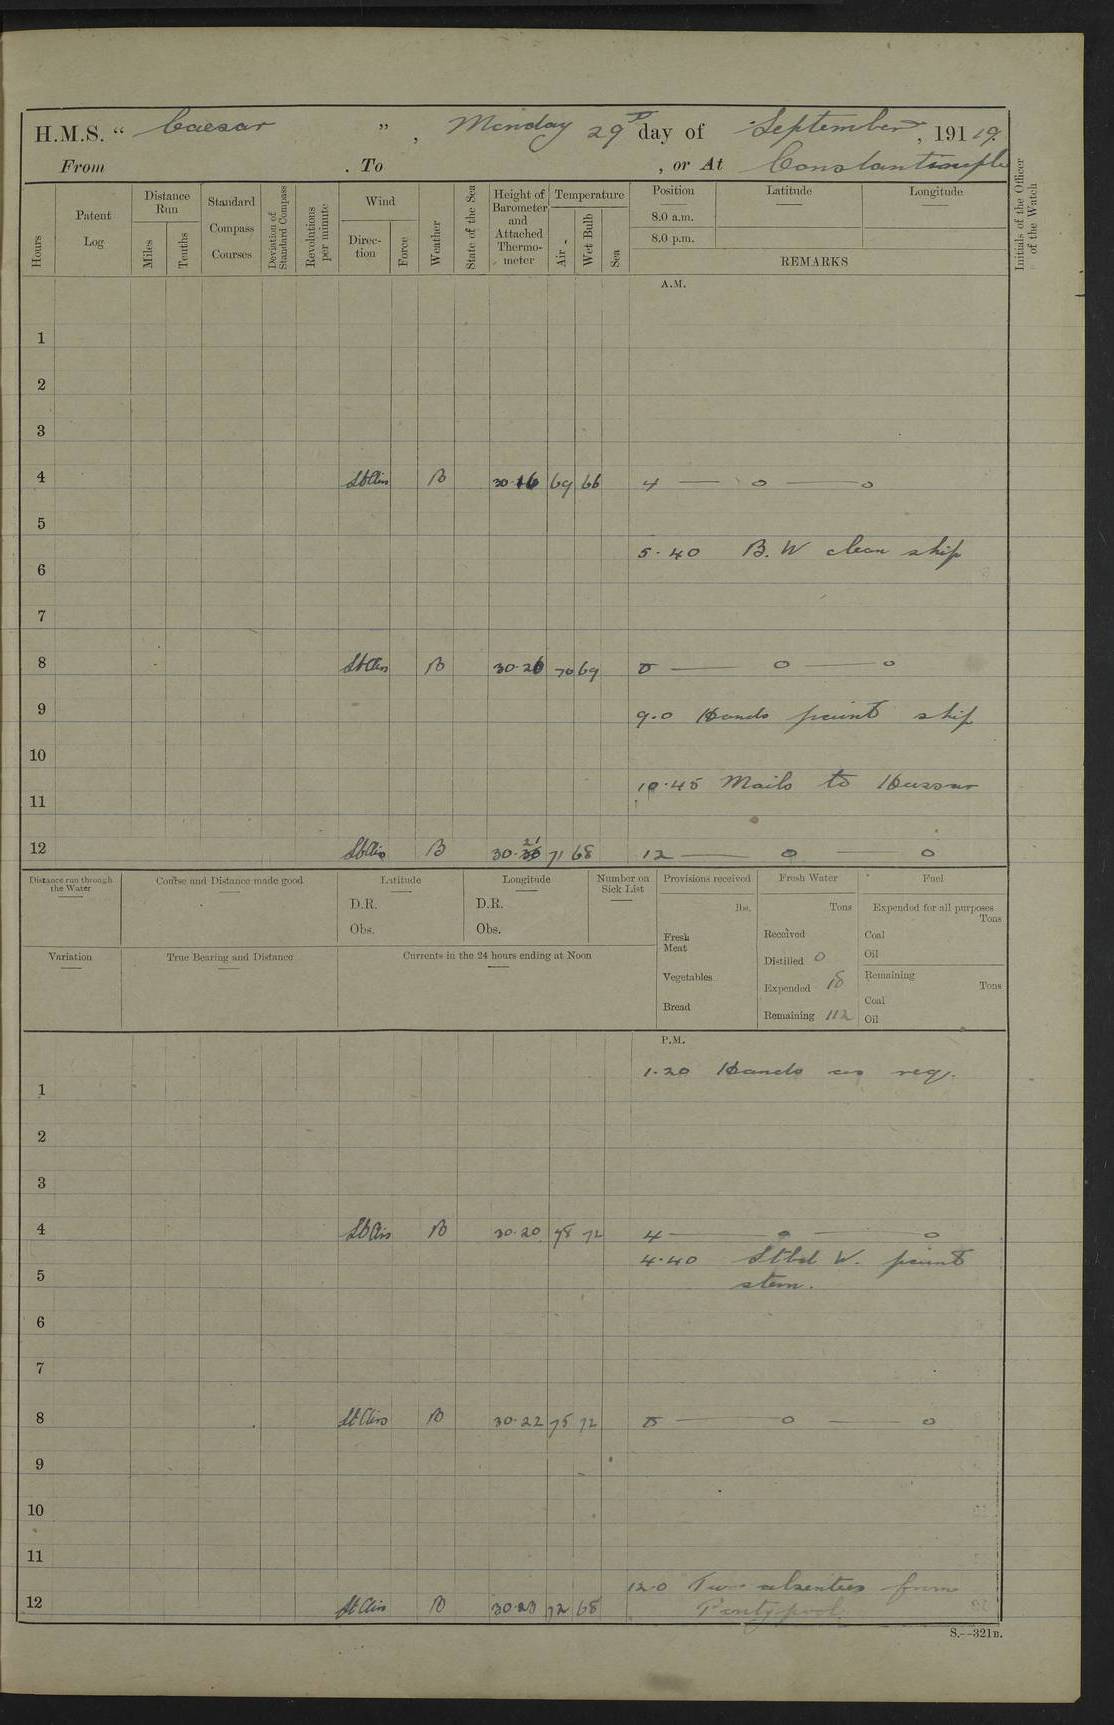 H.M.S. “ Caesar ” , Monday 29th day of September , 1919.
From . To , or At Constantinople
Hours
Patent Log
Distance Run
Miles
Tenths
Standard Compass Courses
Deviation of Standard Compass
Revolutions per minute
Wind
Direction
Force
Weather
State of the Sea
Height of Barometer and Attached Thermometer
Temperature
Air
Wet Bulb
Sea
Position
8.0 a.m.
8.0 p.m.
Latitude
Longitude
REMARKS
Initials of the Officer of the Watch
A.M.
1
2
3
4 Lt Airs B 30.16 69 66 4 — o — o
5
5.40 B.W clean ship
6
7
8 Lt Airs B 30.26 70 69 8 — o — o
9 9.0 Hands paint ship
10
10.45 Mails to Hussar
11
12 Lt Airs B 30.21 71 68 12 — o — o
Distance run through the Water
Course and Distance made good
Latitude
D.R.
Obs.
Longitude
D.R.
Obs.
Number on Sick List
Provisions received
lbs.
Fresh Meat
Vegetables
Bread
Fresh Water
Tons
Received
Distilled 0
Expended 18
Remaining 112
Fuel
Expended for all purposes
Tons
Coal
Oil
Remaining
Tons
Coal
Oil
Variation
True Bearing and Distance
Currents in the 24 hours ending at Noon
P.M.
1.20 Hands as req.
1
2
3
4 Lt Airs B 30.20 78 72 4 — o — o
4.40 Stbd W. paint
stem.
5
6
7
8 Lt Airs B 30.22 75 72 8 — o — o
9
10
11
12.0 Two absentees from
12 Lt Airs B 30.20 72 68 Pontypool.
S.—321B.